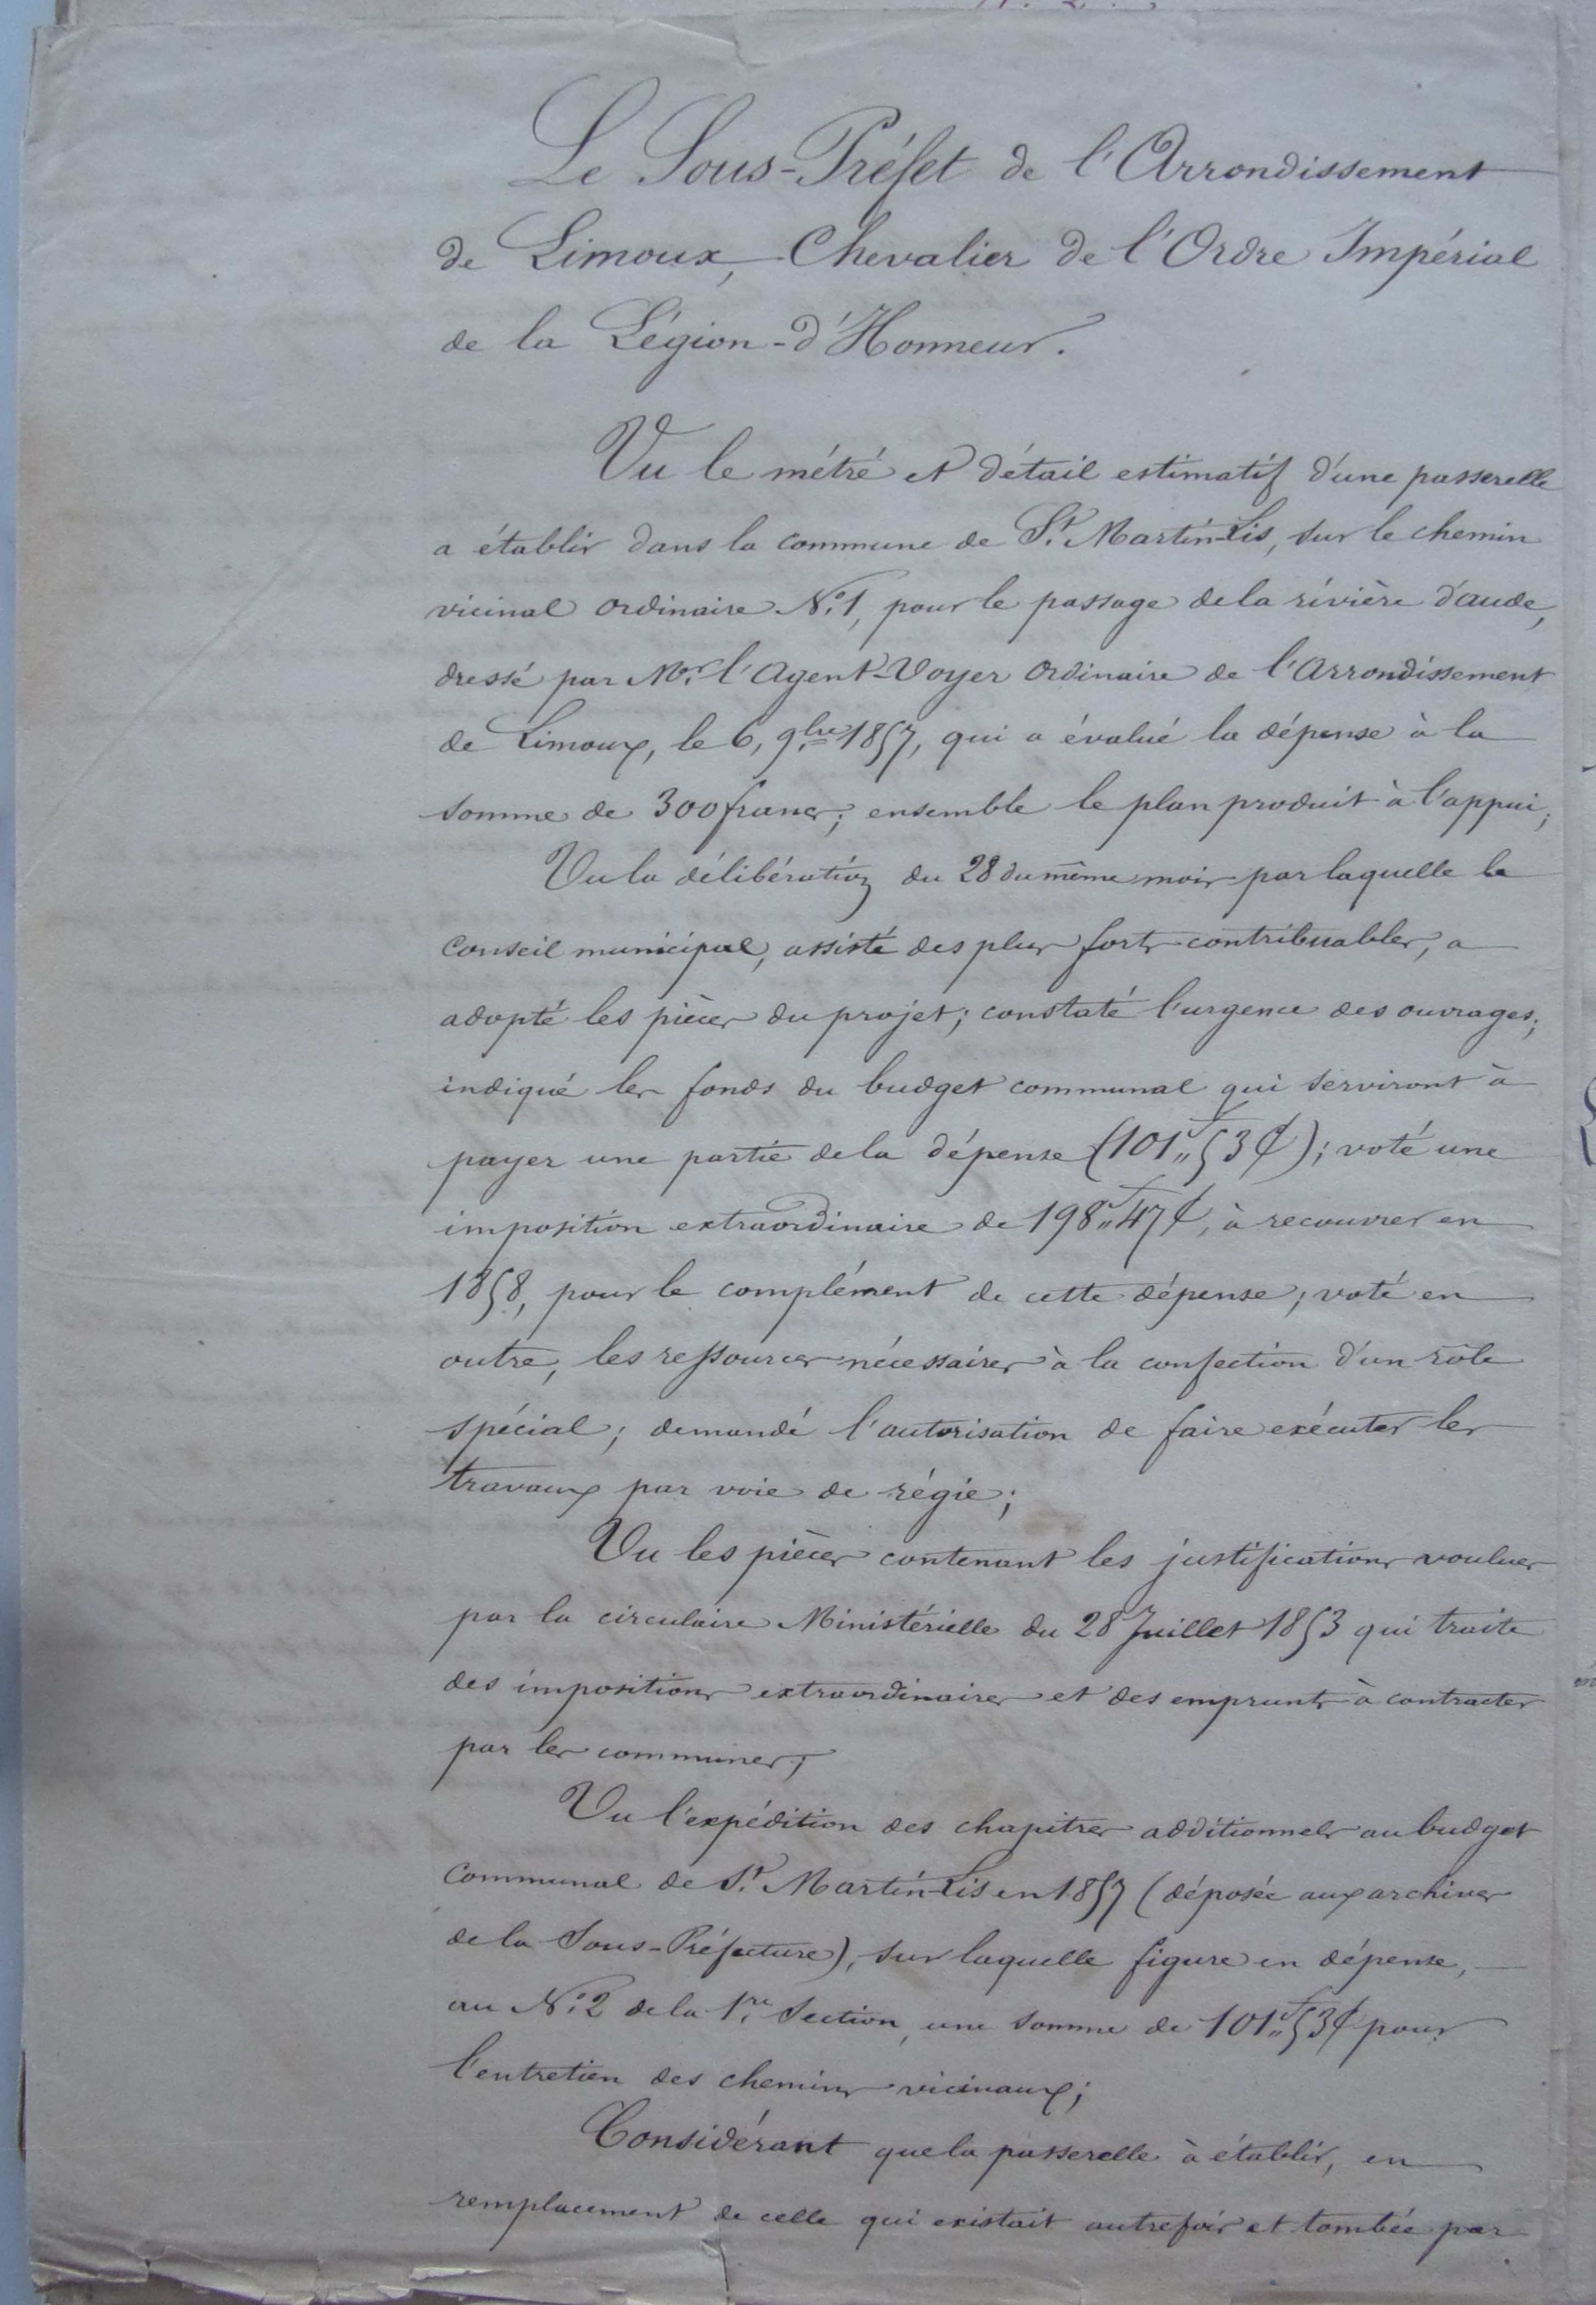 Le Sous-Préfet de l'Arrondissement
de Limoux, Chevalier de l'Ordre Impérial
de la Légion-d'Honneur.
Vu le métré et détail estimatif d'une passerelle
a établir dans la commune de St. Martin-Lis, sur le chemin
vicinal ordinaire N.o 1, pour le passage de la rivière d'aude,
dressé par Mr. l'Agent-Voyer ordinaire de l'Arrondissement
de Limoux, le 6, 9.bre 1857, qui a évalué la dépense à la
somme de 300 francs; ensemble le plan produit à l'appui;
Vu la délibération du 28 du même mois par laquelle le
Conseil municipal, assisté des plus forts contribuables, a
adopté les pièces du projet; constaté l'urgence des ouvrages;
indiqué les fonds du budget communal qui serviront à
payer une partie de la dépense (101f„53c); voté une
imposition extraordinaire de 198f„47c, à recouvrer en
1858, pour le complément de cette dépense; voté en
outre, les ressources nécessaires à la confection d'un rôle
spécial; demandé l'autorisation de faire exécuter les
travaux par voie de régie;
Vu les pièces contenant les justifications voulues
par la circulaire Ministérielle du 28 Juillet 1853 qui traite
des impositions extraordinaires et des emprunts à contracter
par les communes;
Vu l'expédition des chapitres additionnels au budget
Communal de St. Martin-Lis en 1857 (déposée aux archives
de la Sous-Préfecture), sur laquelle figure en dépense,
au N.o 2 de la 1.re Section, une somme de 101f„53c pour
l'entretien des chemins vicinaux;
Considérant que la passerelle à établir, en
remplacement de celle qui existait autrefois et tombée par